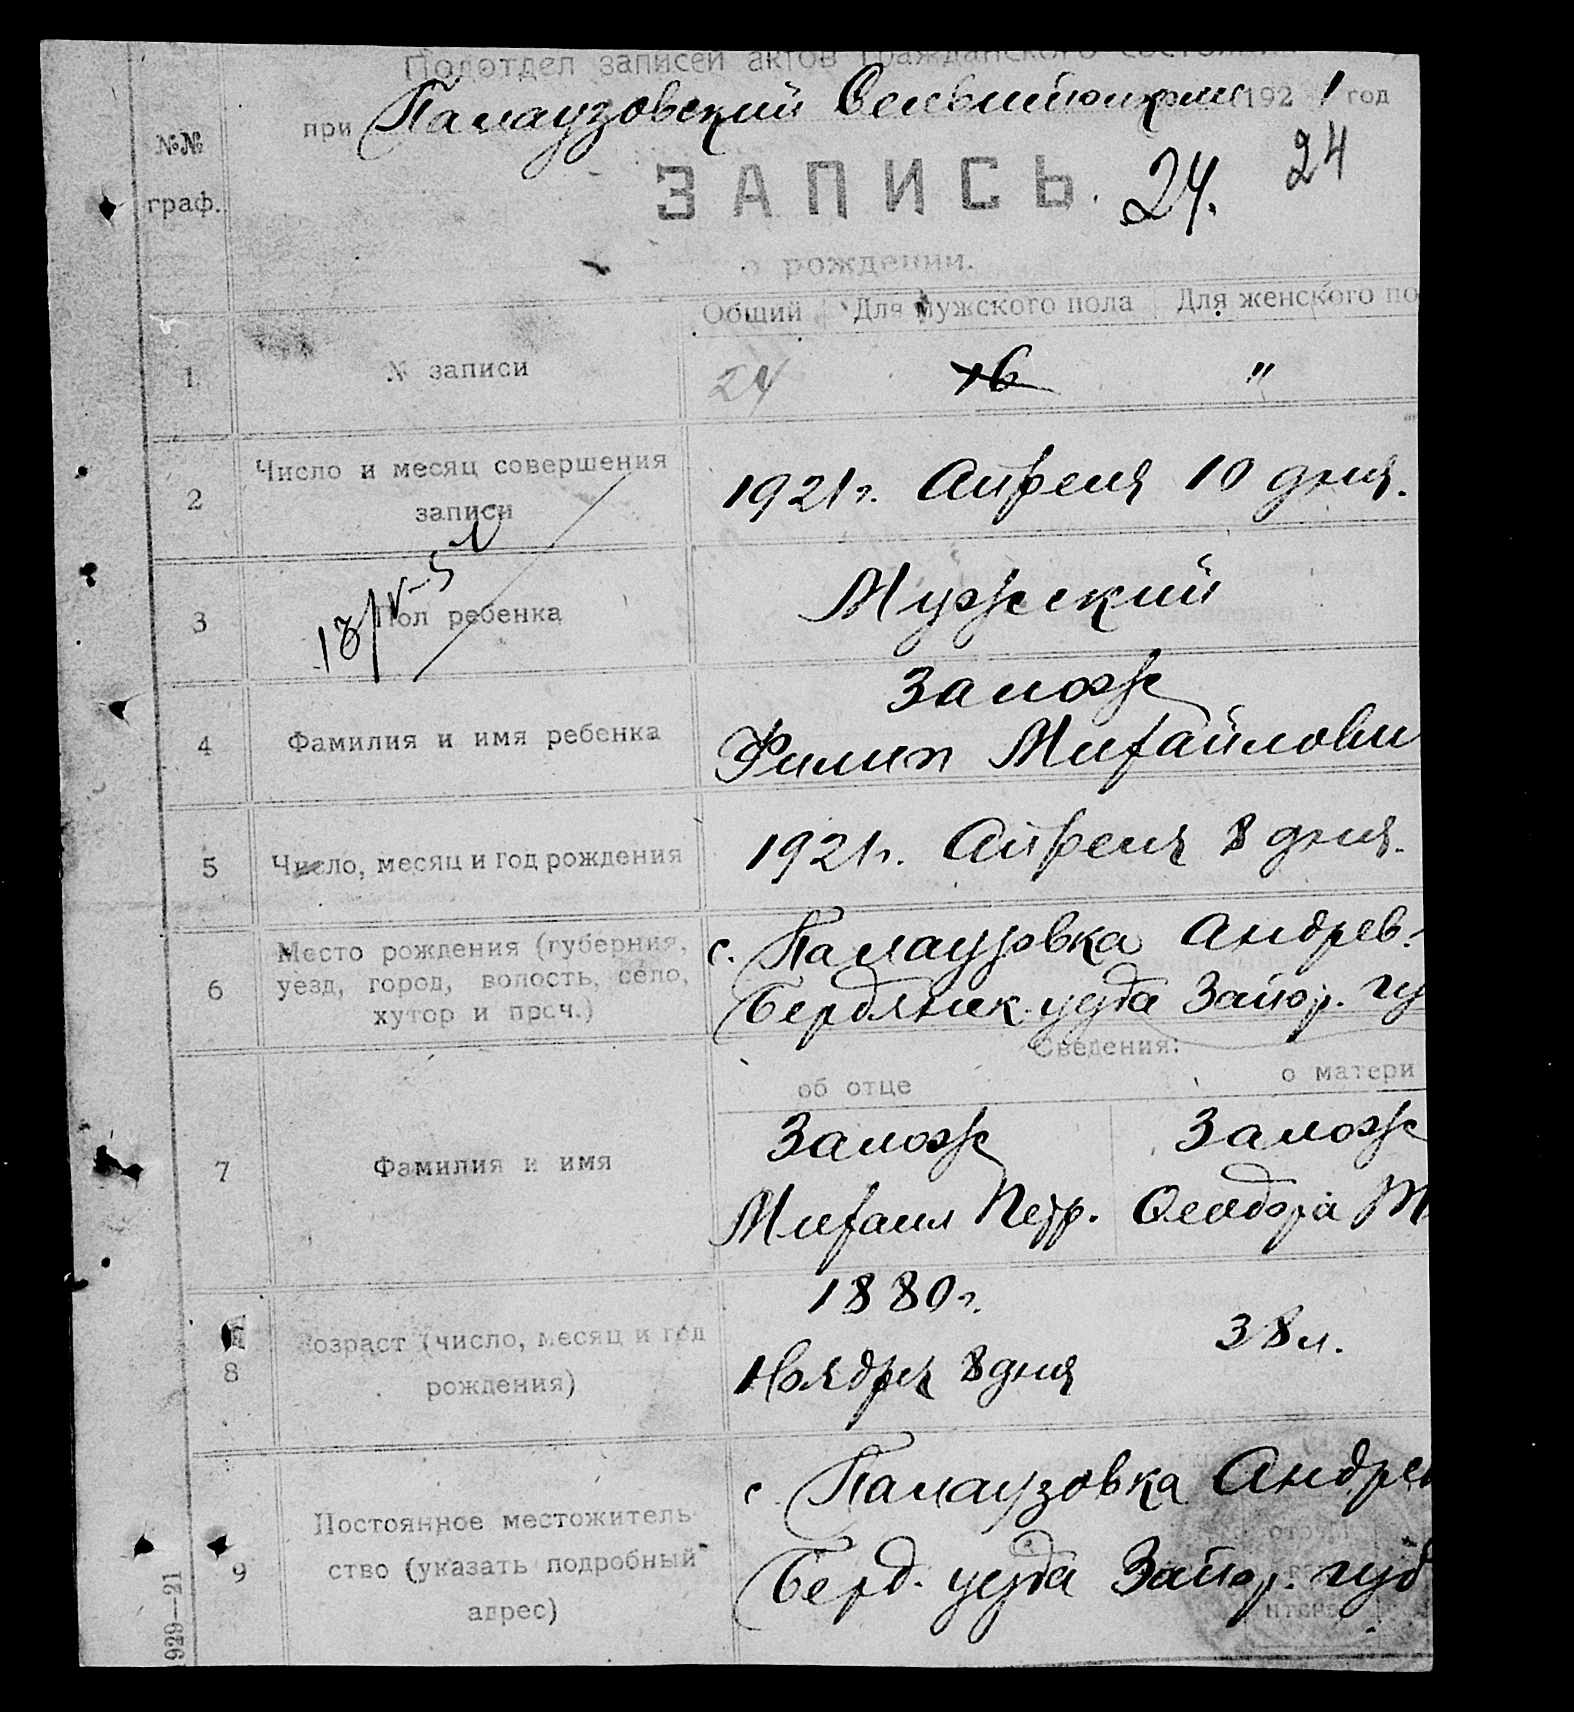 Подотдел записей актов гражданского состояния
при Палаузовский Сельисполком 1921 год
№№
граф.
ЗАПИСЬ. 24. 24
о рождении.
Общий Для мужского пола Для женского по
1 № записи 24 16 "
2 Число и месяц совершения
записи
1921 г. Апреля 10 дня.
3 Пол ребенка Мужский
18/V-5
4 Фамилия и имя ребенка
Залож
Филип Михайлови
5 Число, месяц и год рождения 1921 г. Апреля 8 дня.
6 Место рождения (губерния,
уезд, город, волость, село,
хутор и проч.)
с. Палаузовка Андрев.
Бердянск. уезда Запор. гу
Сведения:
об отце о матери
7 Фамилия и имя
Залож Залож
Михаил Петр. Феодора М
8 Возраст (число, месяц и год
рождения)
1880 г. 38 л.
Ноября 8 дня
9 Постоянное местожитель-
ство (указать подробный
адрес)
с. Палаузовка Андрев
Берд. уезда Запор. губ
929—21